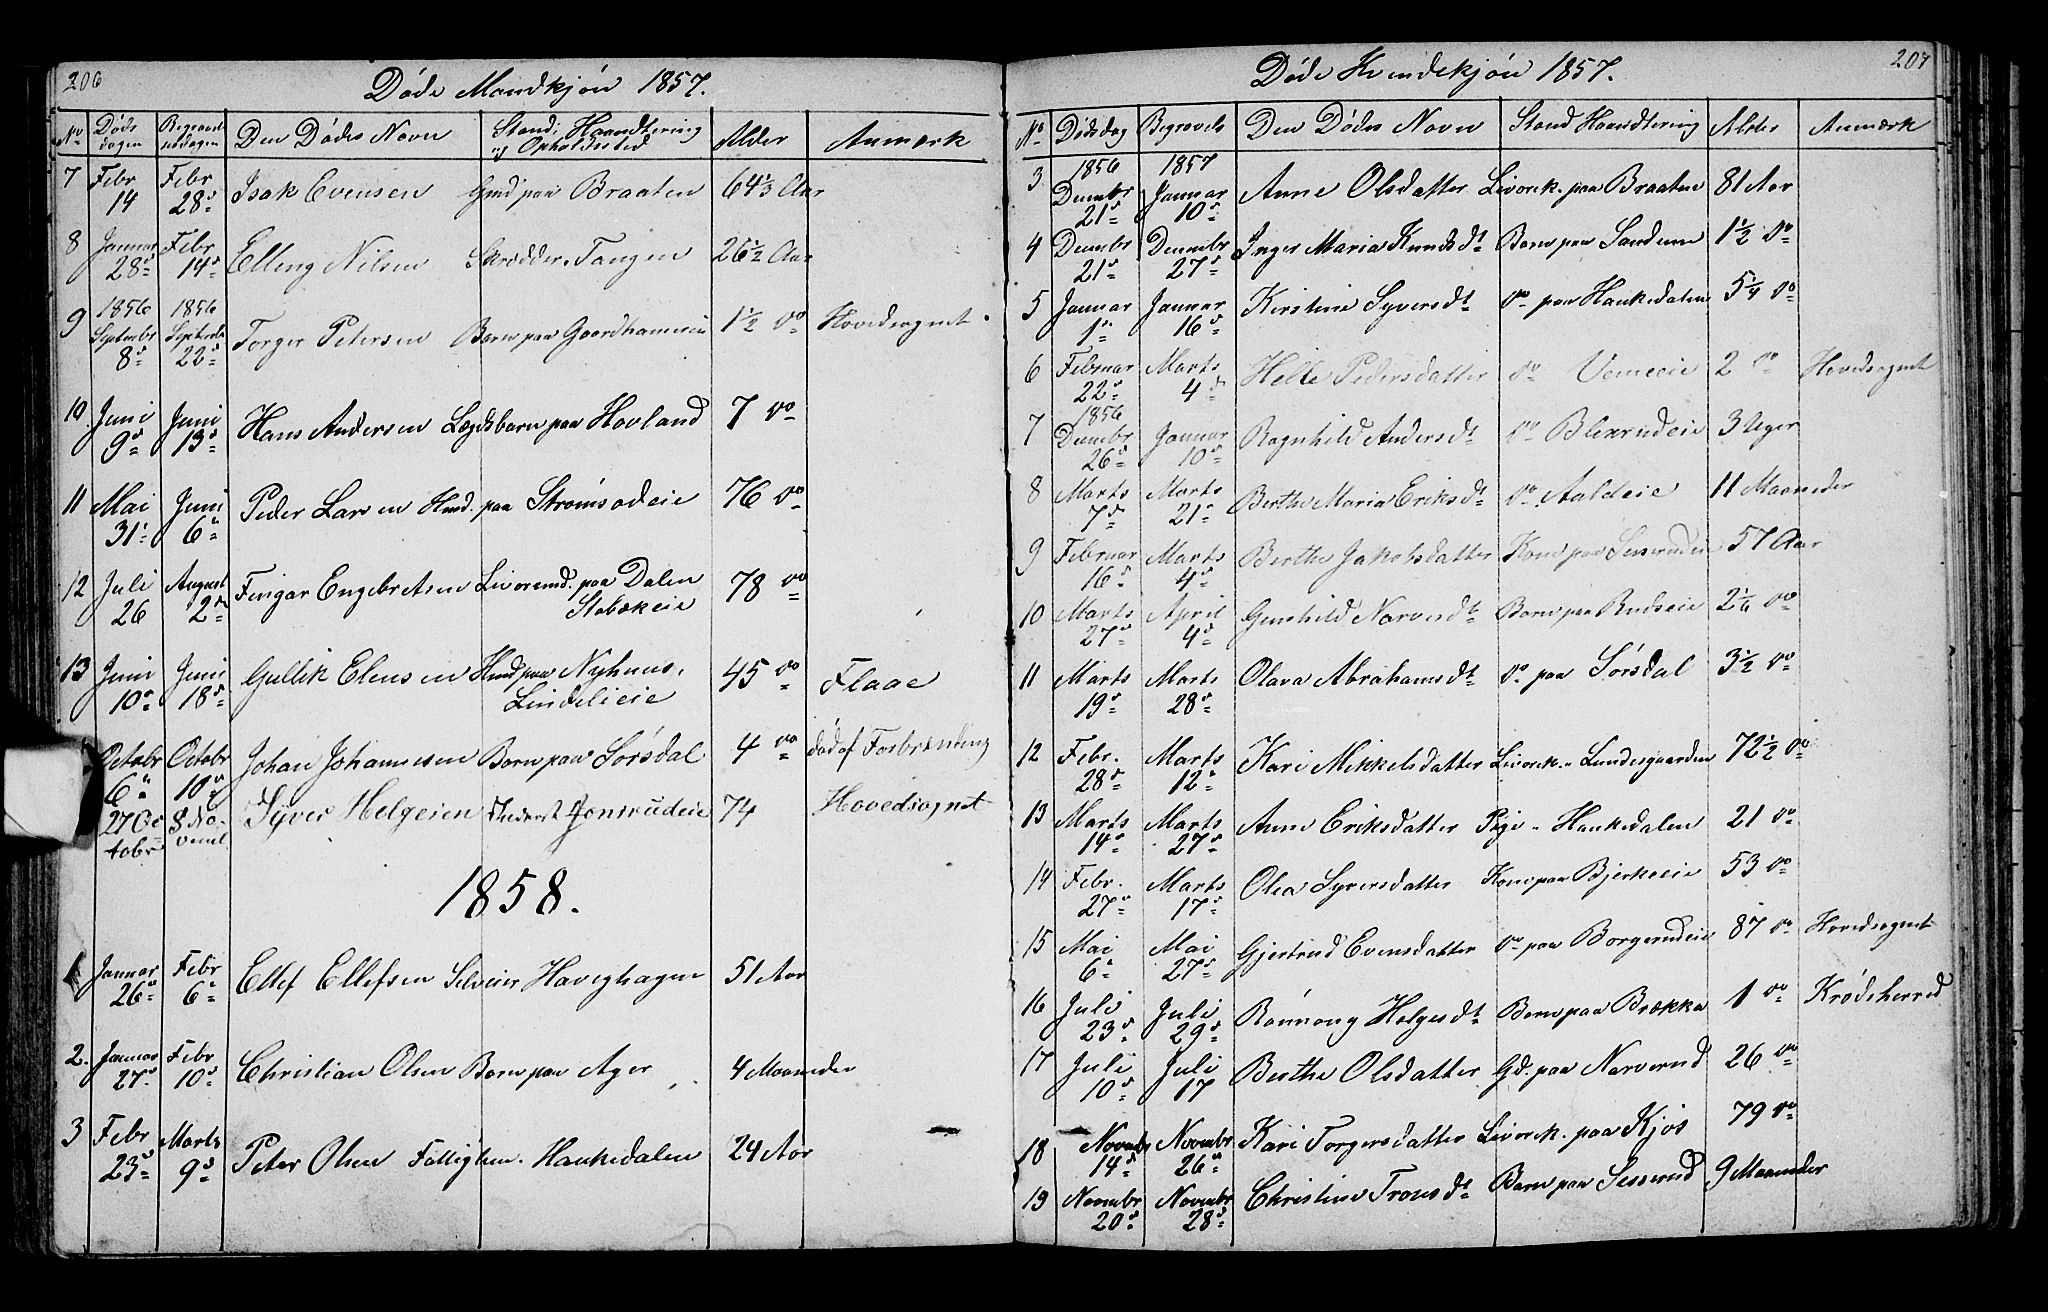 206
Døde Mandkjøn 1857.
No Døds dagen Begravelsesdagen Den Dødes Navn Stand, Haandtering og Opholdssted Alder Anmærk
7 Febr 14 Febr 28de Isak Evensen Gmd paa Braaten 64 1/3 Aar
8 Januar 28de Febr 14de Elling Nilsen Skrædder. Tangen 26 1/2 Aar
9 1856 Septembr 8de 1856 Septembr 22de Torger Petersen Barn paa Gaardhammeren 1 1/2 do Hovedsognet
10 Juni 9de Juni 13de Hans Andersen Lægdsbarn paa Hovland 7 do
11 Mai 31te Juni 6te Peder Larsen Husmd. paa Strømsodeie 76 do
12 Juli 26 August 2den Fingar Engebretsen Livøremd. paa Dalen Stabækeie 78 do
13 Juni 10de Juni 18de Gullik Elensen Husmd paa Nyhuus, Lindelieie 45 do Flaae
Octobr 6te Octobr 10de Johan Johannesen Barn paa Sørsdal 4 do død af Forbrænding
27 Octobr 8 Novembr Syver Helgesen Inderst Jonsrudeie 74 Hovedsognet
1858.
1 Januar 26de Febr 6te Ellef Ellefsen Selveier Haveghagen 51 Aar
2. Januar 27de Febr 10de Christian Olsen Barn paa Ager 4 Maaneder
3 Febr 23de Marts 9de Peter Olsen Fattiglem. Haukedalen 24 Aar
207
Døde Kvindekjøn 1857.
No Dødsdag Begravels Den Dødes Navn Stand Haandtering Alder Anmærk
3 1856 Decembr 21de 1857 Januar 10de Anne Olsdatter Livørek. paa Braaten 81 Aar
4 Decembr 21de Decembr 27de Inger Maria Knudsdt Barn paa Sandum 1 1/2 do
5 Januar 1ste Januar 16de Kirstine Syversdt do paa Haukedalen 5 1/4 do
6 Februar 22de Marts 4de Helle Pedersdatter do Vemeeie 2 do Hovedsognet
7 1856 Decembr 26de Januar 10de Ragnhild Andersdt do Blexrudeie 3 Uger
8 Marts 7de Marts 21de Berthe Maria Eriksdt do Aaldeie 11 Maaneder
9 Februar 16de Marts 4de Berthe Jakobsdatter Kone paa Sesserudeie 57 Aar
10 Marts 27de April 4de Gunhild Narvesdt Barn paa Rudseie 2 1/6 do
11 Marts 19de Marts 28de Olava Abrahamsdt do paa Sørsdal 3 1/2 do
12 Febr. 28de Marts 12te Kari Mikkelsdatter Livørek. " Lundesgaarden 72 1/2 do
13 Marts 14de Marts 27de Anne Eriksdatter Pige " Haukedalen 21 do
14 Febr. 27de Marts 17de Olea Syversdatter Kone paa Bjerkeeie 53 do
15 Mai 6te Mai 27de Gjertrud Evensdatter do paa Borgerudeie 87 do Hovedsognet
16 Juli 23de Juli 29de Rønnong Helgesdt Barn paa Brækka 1 do Krødsherred
17 Juli 10de Juli 17 Berthe Olsdatter Gd. paa Narverud 26 do
18 Novembr 14de Novembr 26de Kari Torgersdatter Livørek. paa Kjøs 79 do
19 Novembr 20de Novembr 28de Christine Tronsdt Barn paa Sesserud 9 Maaneder